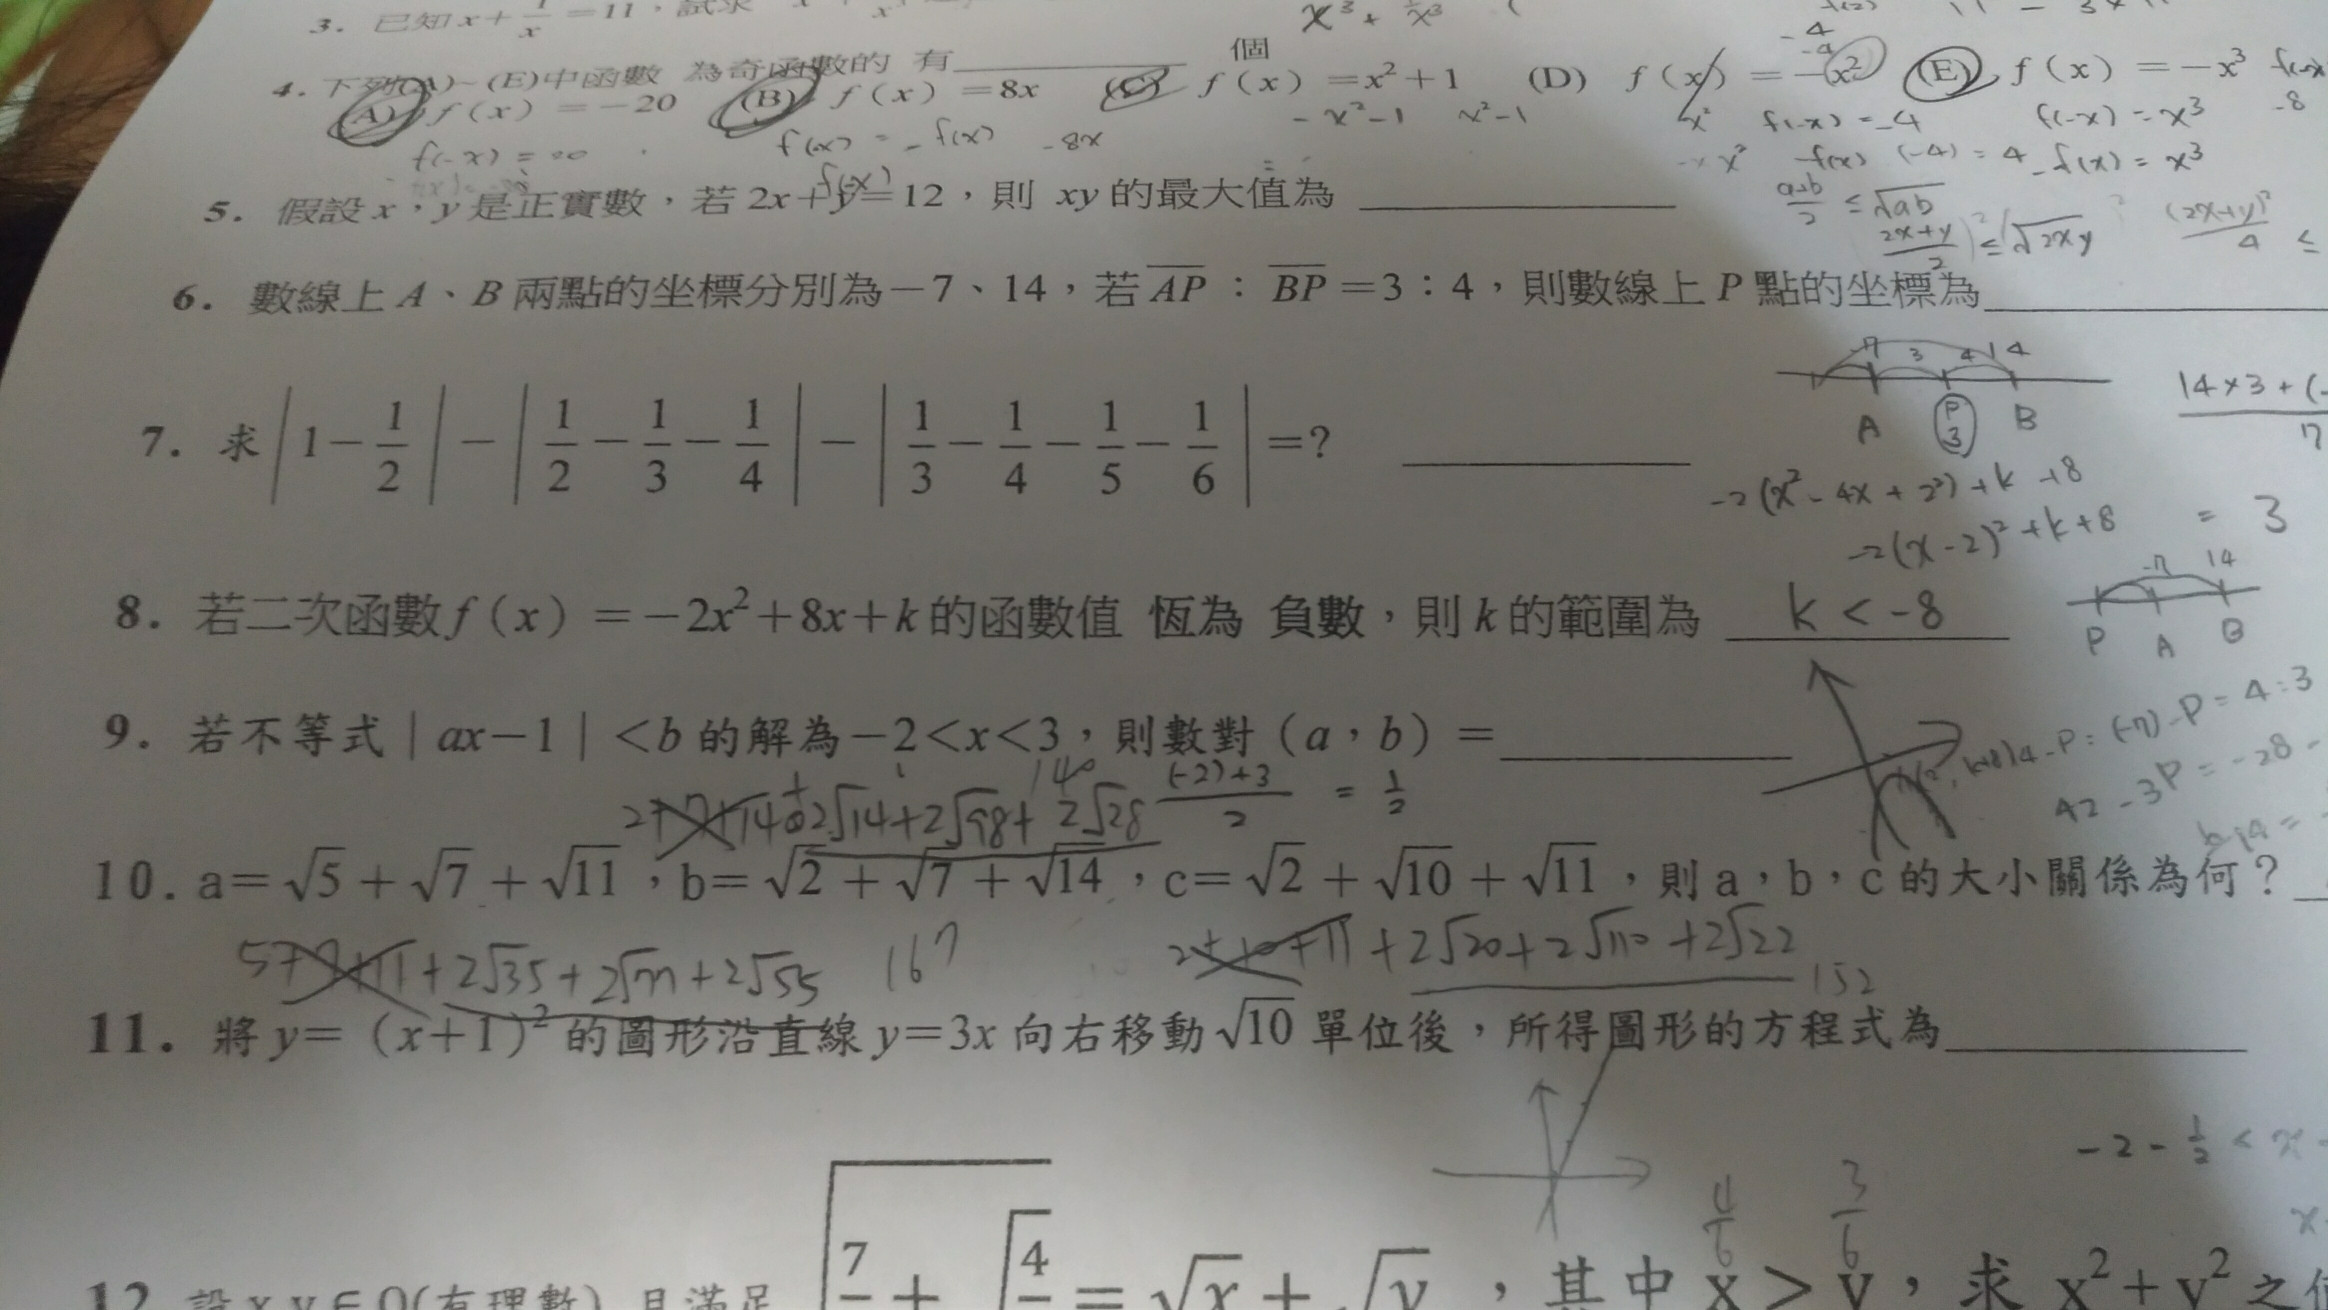 3. 已知 x + 1/x = 11，試求
x³ +
4. 下列(A)~(E)中函數 為奇函數的 有________個
(A) f(x) = -20 (B) f(x) = 8x (C) f(x) = x² + 1 (D) f(x) = -x² (E) f(x) = -x³
f(-x) = 20
f(-x) = -f(x) -8x
-x²-1 x²-1
f(-x) = -4
f(-x) = x³
-f(x) (-4) = 4 -f(x) = x³
5. 假設 x，y 是正實數，若 2x+y=12，則 xy 的最大值為________
a+b/2 ≤ √ab
2x+y/2 ≤ √2xy (2x+y)²/4 ≤
6. 數線上 A、B 兩點的坐標分別為 -7、14，若 AP : BP = 3 : 4，則數線上 P 點的坐標為________
-7 3 4 14
A P 3 B
14×3+(-
7
= 3
7. 求 |1 - 1/2| - |1/2 - 1/3 - 1/4| - |1/3 - 1/4 - 1/5 - 1/6| =? ________
-2(x²-4x+2²)+k+8
-2(x-2)²+k+8
8. 若二次函數 f(x) = -2x² + 8x + k 的函數值 恆為 負數，則 k 的範圍為 k < -8
-7 14
P A B
9. 若不等式 | ax-1 | < b 的解為 -2<x<3，則數對 (a，b) = ________
14-P : (-7)-P = 4:3
42-3P = -28-
(-2)+3/2 = 1/2
2+7+14+2√14+2√98+2√28 140
10. a=√5+√7+√11，b=√2+√7+√14，c=√2+√10+√11，則 a，b，c 的大小關係為何？
5+7+11+2√35+2√77+2√55 167
2+10+11+2√20+2√110+2√22 152
11. 將 y=(x+1)² 的圖形沿直線 y=3x 向右移動 √10 單位後，所得圖形的方程式為________
-2-1/2 < x
4/6 3/6
12. 設 x, y ∈ Q(有理數) 且滿足 √(7/ + √4/ = √x + √y，其中 x > y，求 x² + y² 之